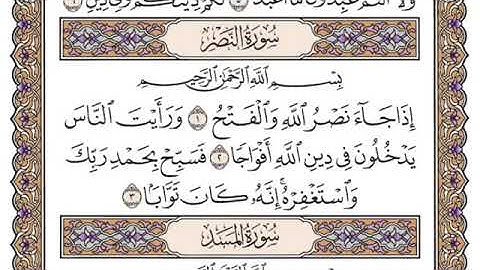 وَلَا أَنتُمْ عَٰبِدُونَ مَا أَعْبُدُ ٥ لَكُمْ دِينُكُمْ وَلِيَ دِينِ ٦
سُورَةُ النَّصْرِ
بِسْمِ ٱللَّهِ ٱلرَّحْمَٰنِ ٱلرَّحِيمِ
إِذَا جَآءَ نَصْرُ ٱللَّهِ وَٱلْفَتْحُ ١ وَرَأَيْتَ ٱلنَّاسَ
يَدْخُلُونَ فِى دِينِ ٱللَّهِ أَفْوَاجًا ٢ فَسَبِّحْ بِحَمْدِ رَبِّكَ
وَٱسْتَغْفِرْهُ ۚ إِنَّهُۥ كَانَ تَوَّابًۢا ٣
سُورَةُ المَسَدِ